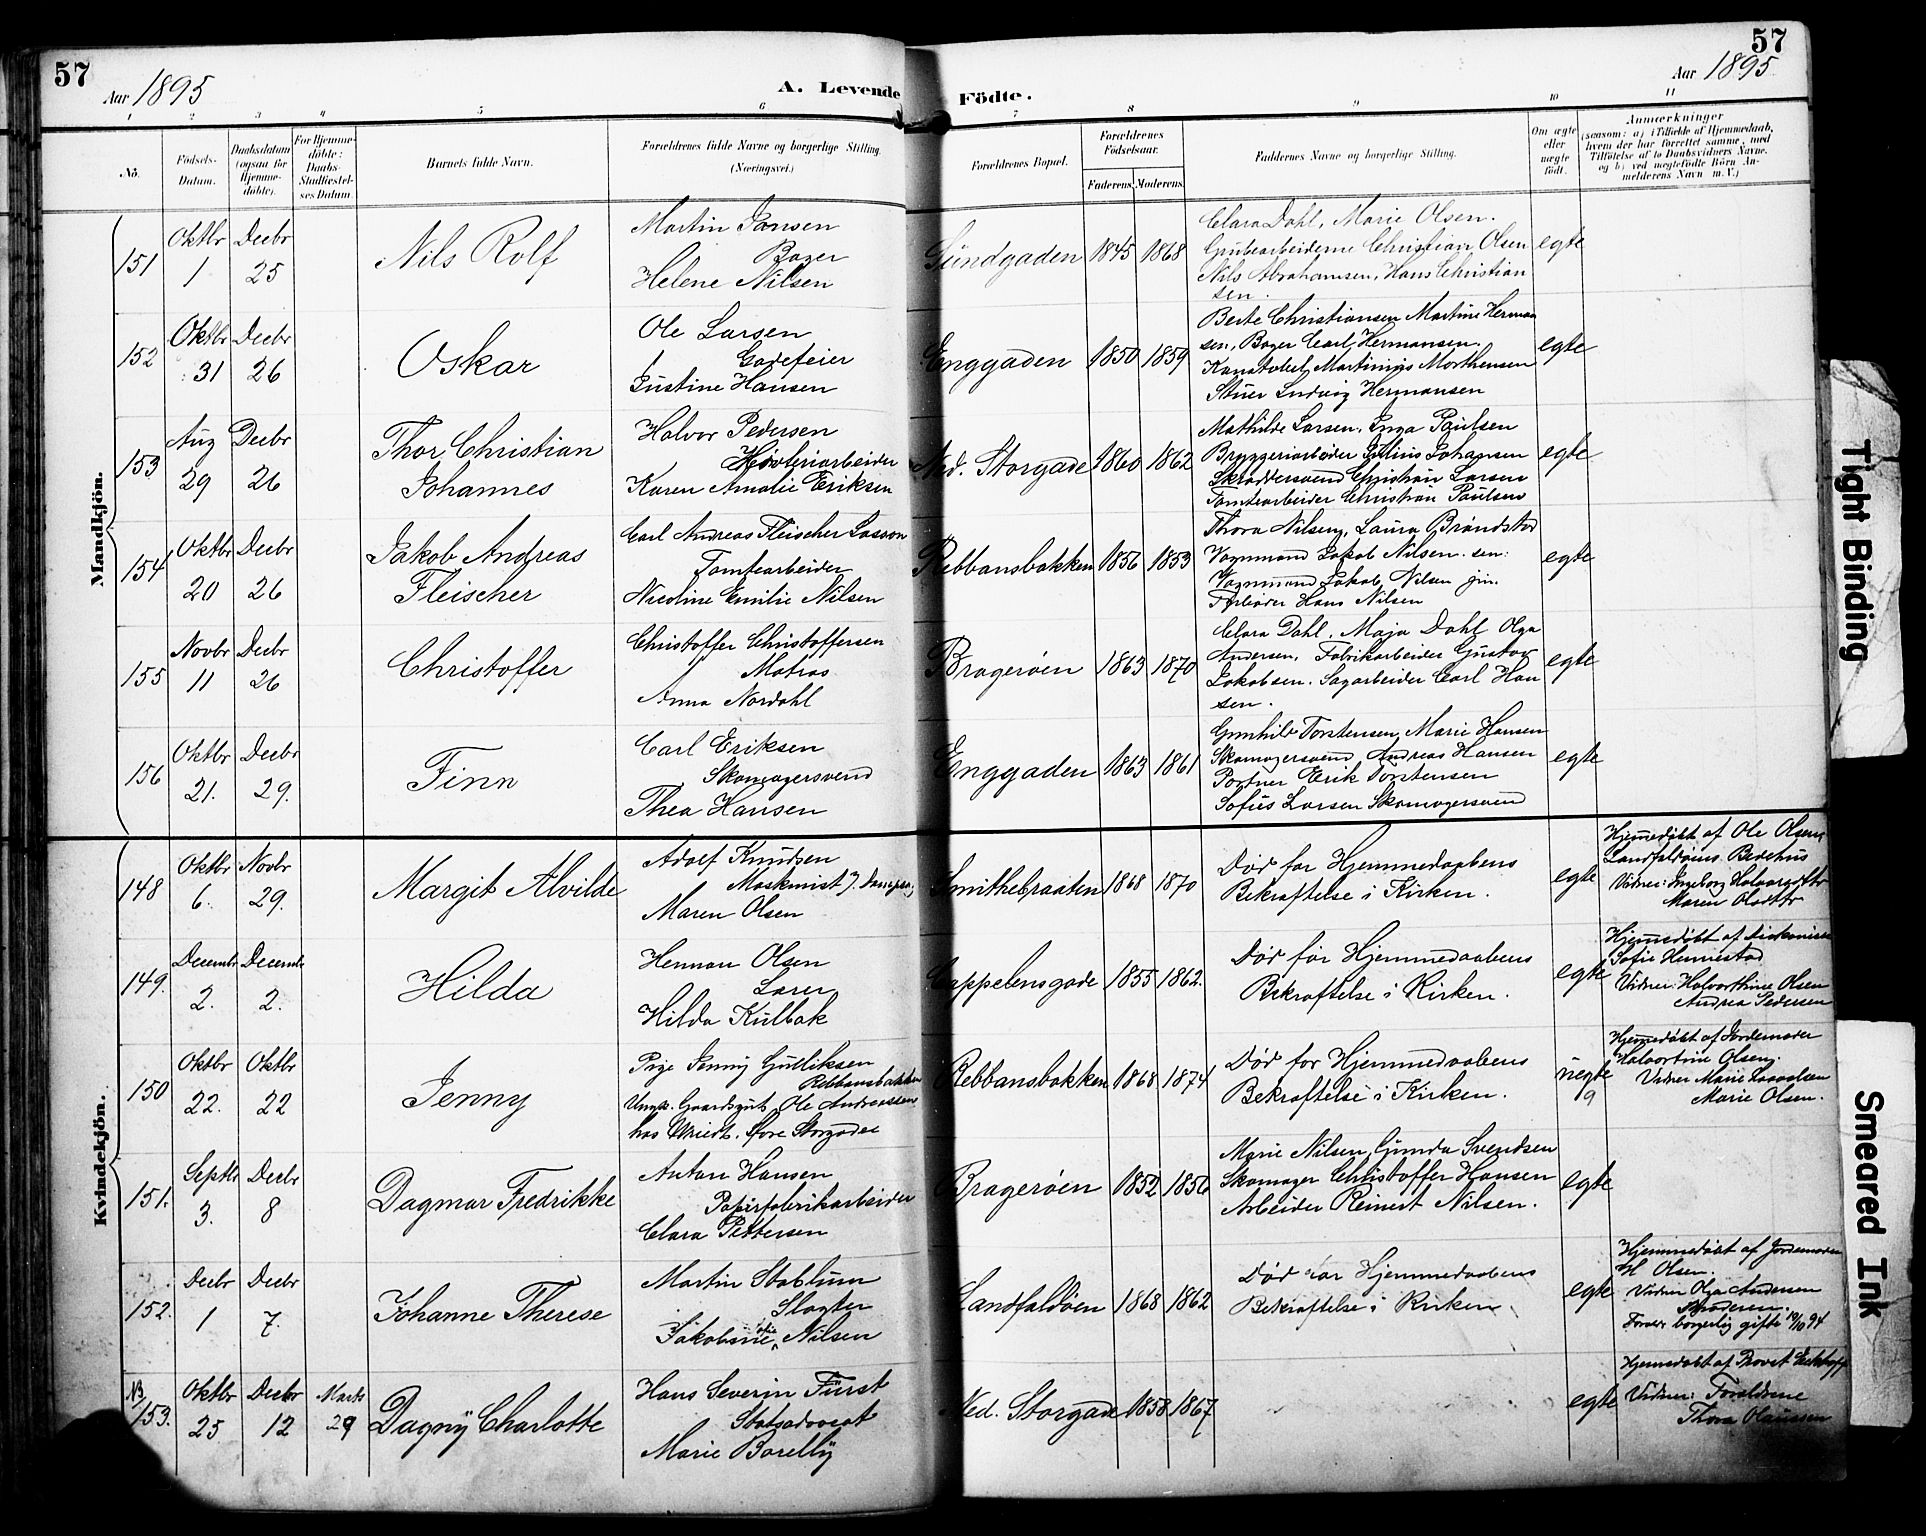 57
57
Aar 1895
A. Levende Födte.
Aar 1895
1 2 3 4 5 6 7 8 9 10 11
No.
Födsels-Datum.
Daabsdatum (ogsaa for Hjemme-döbte).
For Hjemme-döbte: Daabs-Stadfæstel-ses Datum.
Barnets fulde Navn.
Forældrenes fulde Navne og borgerlige Stilling. (Næringsvei.)
Forældrenes Bopæl.
Forældrenes Födselsaar.
Faderens. Moderens.
Faddernes Navne og borgerlige Stilling.
Om ægte eller uægte födt.
Anmærkninger
(saasom: a) i Tilfælde af Hjemmedaab, hvem der har forrettet samme, med Tilföielse af to Daabsvidners Navne. og b) ved uægtefödte Börn An-melderens Navn m. V.)
Mandkjön.
151
Oktbr 1
Decbr 25
Nils Rolf
Martin Jansen
Bager
Helene Nilsen
Sundgaden
1845 1868
Clara Dahl, Marie Olsen.
Grubearbeiderne Christian Olsen
Nils Abrahamsen, Hans Christian
sen.
egte
152
Oktbr 31
Decbr 26
Oskar
Ole Larsen
Gadefeier
Justine Hansen
Enggaden
1850 1859
Berte Christiansen Martine Herman
sen, Bager Carl Hermansen.
Martinius Morthensen
Stuer Ludvig Hermansen
egte
153
Aug 29
Decbr 26
Thor Christian
Johannes
Halvor Pedersen
Karen Amalie Eriksen
Ned. Storgade
1860 1862
Mathilde Larsen, Inga Paulsen
Bryggeriarbeider Julius Johansen
Skræddersvend Christian Larsen
Tomtearbeider Christian Paulsen
egte
154
Oktbr 20
Decbr 26
Jakob Andreas
Fleischer
Carl Andreas Fleischer Lasson
Tomtearbeider
Nicoline Emilie Nilsen
Rebbansbakken
1856 1853
Thora Nilsen, Laura Brandstad
Vognmand Jakob Nilsen sen:
Vognmand Jakob Nilsen jun.
Hans Nilsen
egte
155
Novbr 11
Decbr 26
Christoffer
Christoffer Christoffersen
Matros
Anna Nordahl
Bragerøen
1863 1870
Clara Dahl, Maja Dahl Olga
Andersen, Fabrikarbeider Gustav
Jakobsen. Sagarbeider Carl Han
sen.
egte
156
Oktbr 21.
Decbr 29.
Finn
Carl Eriksen
Skomagersvend
Thea Hansen
Enggaden
1863 1861
Gunhild Torstensen, Marie Hansen
Skomagersvend, Andreas Hansen
Portner Erik Torstensen
Sofus Larsen Skomagersvend
egte
Kvindekjön.
148
Oktbr 6.
Novbr 29.
Margit Alvilde
Adolf Knudsen
Maskinist
Maren Olsen
Smithebraaten
1868 1870
Død før Hjemmedaabens
Bekræftelse i Kirken.
egte
Hjemmedøbt af Ole Olsen
Landfaldøens Bedehus
Vidner: Ingeborg Halvorsdttr
Maren Olsdttr
149.
Decembr 2.
Decembr 2.
Hilda
Herman Olsen
Hilda Kulbak
Cappelensgade
1855 1862.
Død før Hjemmedaabens
Bekræftelse i Kirken.
egte
Hjemmedøbt af Diakonisse
Sofie Hennestad
Vidner: Halvorthine Olsen
Andrea Pedersen
150
Oktbr 22.
Oktbr 22
Jenny
Pige Jenny Gulliksen
Rebbansbakken
Ungk. Gaardsgut Ole Andreassen
Storgade
Rebbansbakken
1868 1874
Død før Hjemmedaabens
Bekræftelse i Kirken.
uegte
9
Hjemmedøbt af Jordemoder
Halvortine Olsen.
Vidner Marie
Marie Olsen.
151.
Septbr 3.
Decbr 8
Dagmar Fredrikke
Anton Hansen
Papirfabrikarbeider
Clara Pettersen
Bragerøen
1852 1856
Marie Nilsen, Gunda Svendsen
Skomager Christoffer Hansen
Arbeider Reinert Nilsen.
egte
152.
Decbr 1
Decbr 7.
Johanne Therese
Martin Stablum
Slagter
Jakobine Nilsen
Landfaldøen
1868 1862
Død før Hjemmedaabens
Bekræftelse i Kirken
egte
Hjemmedøbt af Jordemoder
H Olsen.
Vidner Olga Andersen
Foræld borgerlig gifte 19/10 94
N3
153.
Oktbr 25
Decbr 12
Marts 29
Dagny Charlotte
Hans Severin Fürst
Statsadvocat
Marie Borelly
Ned. Storgade
1858 1867
egte
Hjemmedøbt af Provst
Vidner: Forældrene
Thora Olaussen
Tight Binding
Smeared Ink